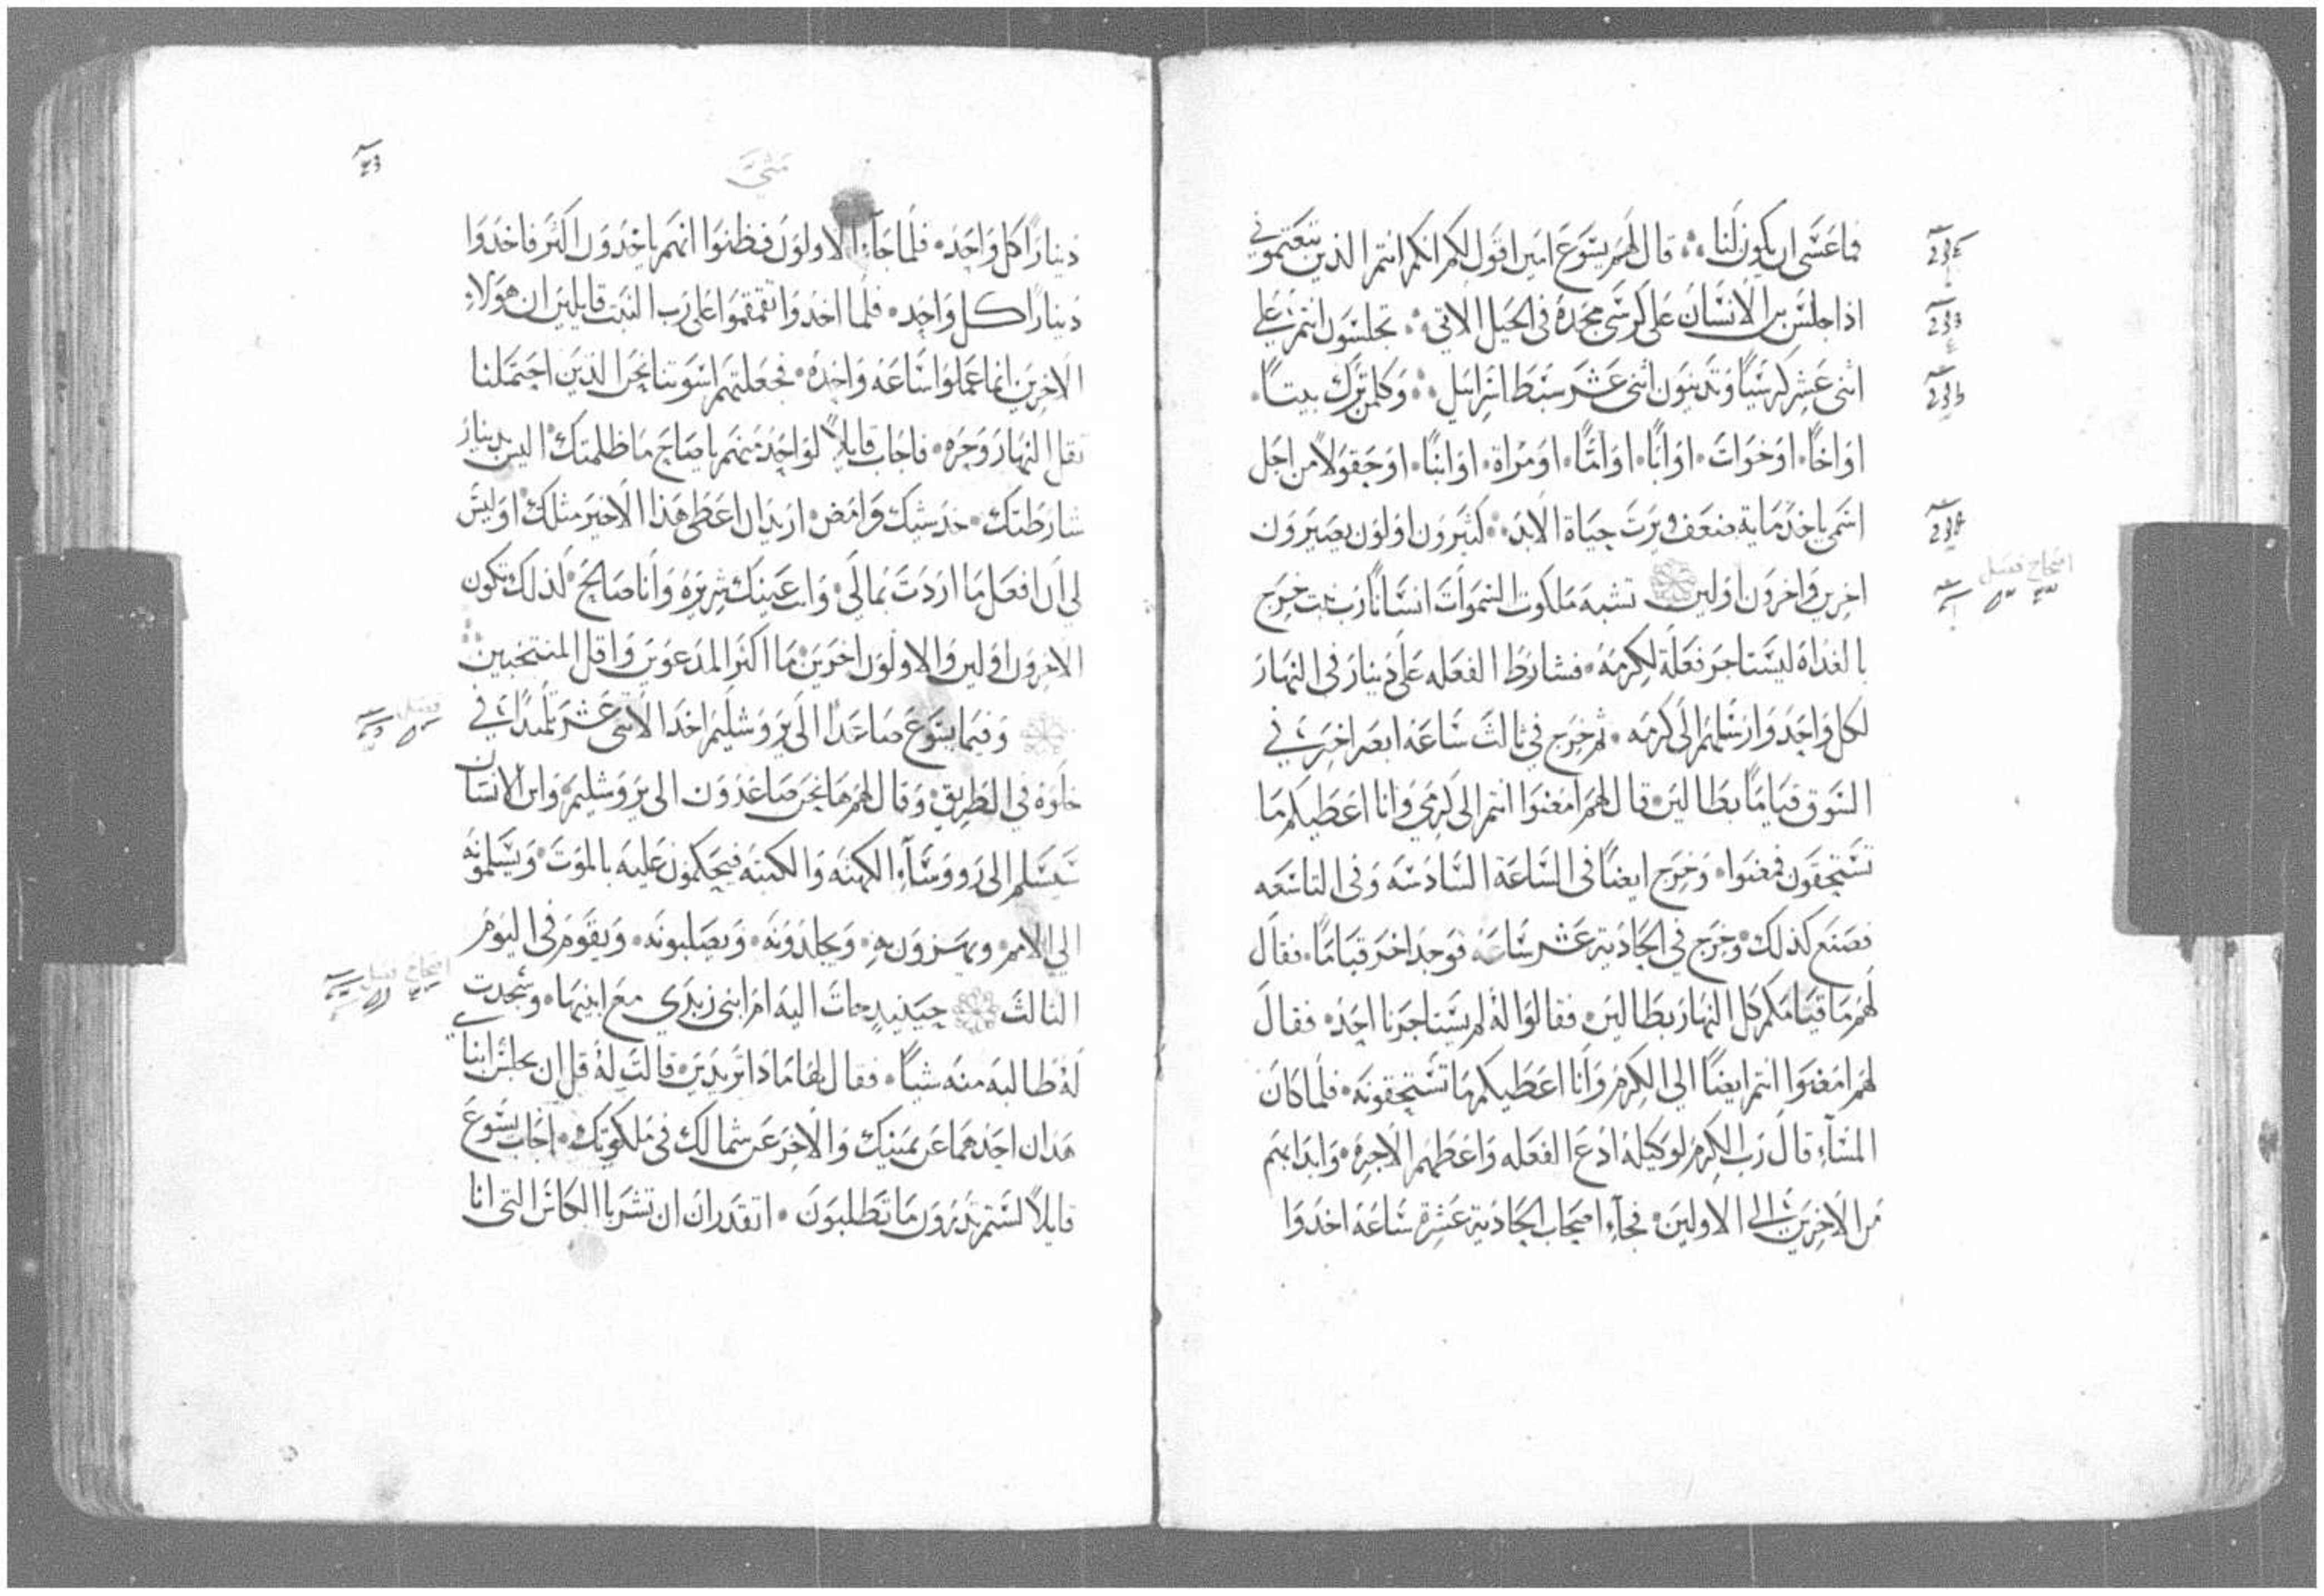 فما عسى ان يكون لنا ۞ قال لهم يسوع امين اقول لكم انكم انتم الذين تبعتموني
اذا جلس ابن الانسان على كرسي مجده في الجيل الاتي ۞ تجلسون انتم على
اثنى عشر كرسيًا وتدينون اثنى عشر سبط اسرايل ۞ وكلمن ترك بيتًا
او اخًا او خوات او ابًا او امًا او مراة او ابنًا او حقولاً من اجل
اسمي ياخذ ماية ضعف ويرت حياة الابد ۞ كثيرون اولون يصيرون
اخرين واخرون اولين تشبه ملكوت السموات انسانًا رب بيت خرج
بالغداة ليستاجر فعلة لكرمه فشارط الفعله على دينار في النهار
لكل واحد وارسلهم الى كرمه ثم خرج في ثالث ساعه ابصر اخرين في
السوق قيامًا بطالين قال لهم امضوا انتم الى كرمي وانا اعطيكم ما
تستحقون فمضوا وخرج ايضًا في الساعة السادسه وفي التاسعه
فصنع كذلك وخرج في الحادية عشر ساعه فوجد اخر قيامًا فقال
لهم ما قيامكم كل النهار بطالين فقالوا له لم يستاجرنا احد فقال
لهم امضوا انتم ايضًا الى الكرم وانا اعطيكم ما تستحقونه فلما كان
المسآء قال رب الكرم لوكيله ادع الفعله واعطهم الاجره وابدا بهم
من الاخرين الى الاولين فجآء اصحاب الحادية عشرة ساعه اخدوا
اصحاح فصل
متى
دينارًا كل واحد فلما جآء الاولون فظنوا انهم ياخدون اكثر فاخدوا
دينارًا كل واحد فلما اخدوا تقمقموا على رب البيت قايلين ان هولاء
الاخرين انما عملوا ساعه واحده فجعلتهم اسوتنا نحن الذين احتملنا
ثقل النهار وحره فاجاب قايلاً لواحد منهم يا صاح ما ظلمتك اليس بدينار
شارطتك خد شيك وامض اريد ان اعطي هذا الاخير مثلك اوليس
لي ان افعل ما اردت بمالي وانت عينك شريره وانا صالح لذلك تكون
الاخرون اولين والاولون اخرين ما اكثر المدعوين واقل المنتخبين
وفيما يسوع صاعدًا الى يروشليم اخد الاثنى عشر تلميدًا في
خلوه في الطريق وقال لهم ها نحن صاعدون الى يروشليم وابن الانسان
سيسلم الى رووسآء الكهنه والكتبه فيحكمون عليه بالموت ويسلمونه
الى الامم ويهزون به ويجلدونه ويصلبونه ويقوم في اليوم
الثالث حينيد جات اليه ام ابنى زبدي مع ابنيها وسجدت
له طالبه منه شيًا فقال لها ماذا تريدين قالت له قل ان يجلس ابناي
هدان احدهما عن يمينك والاخر عن شمالك في ملكوتك اجاب يسوع
قايلاً لستم تدرون ما تطلبون اتقدران ان تشربا الكاس التي انا
فصل
اصحاح فصل